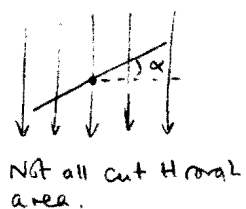 α
Not all cut through
area.